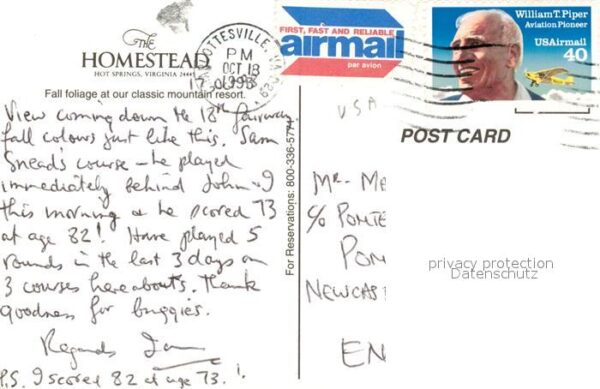 The
HOMESTEAD
HOT SPRINGS, VIRGINIA 24445
Fall foliage at our classic mountain resort.
View coming down the 18th fairway
fall colours just like this. Sam
Snead's course - he played
immediately behind John & I
this morning & he scored 73
at age 82! Have played 5
rounds in the last 3 days on
3 courses hereabouts. Thank
goodness for buggies.
Regards Ian
P.S. I scored 82 at age 73!
For Reservations: 800-336-5771
OTTESVILLE, VA
PM
OCT 18
1993
FIRST, FAST AND RELIABLE
airmail
par avion
William T. Piper
Aviation Pioneer
USAirmail
40
USA
POST CARD
MR. ME
c/o PONTE
PON
NEWCAS
EN
privacy protection
Datenschutz